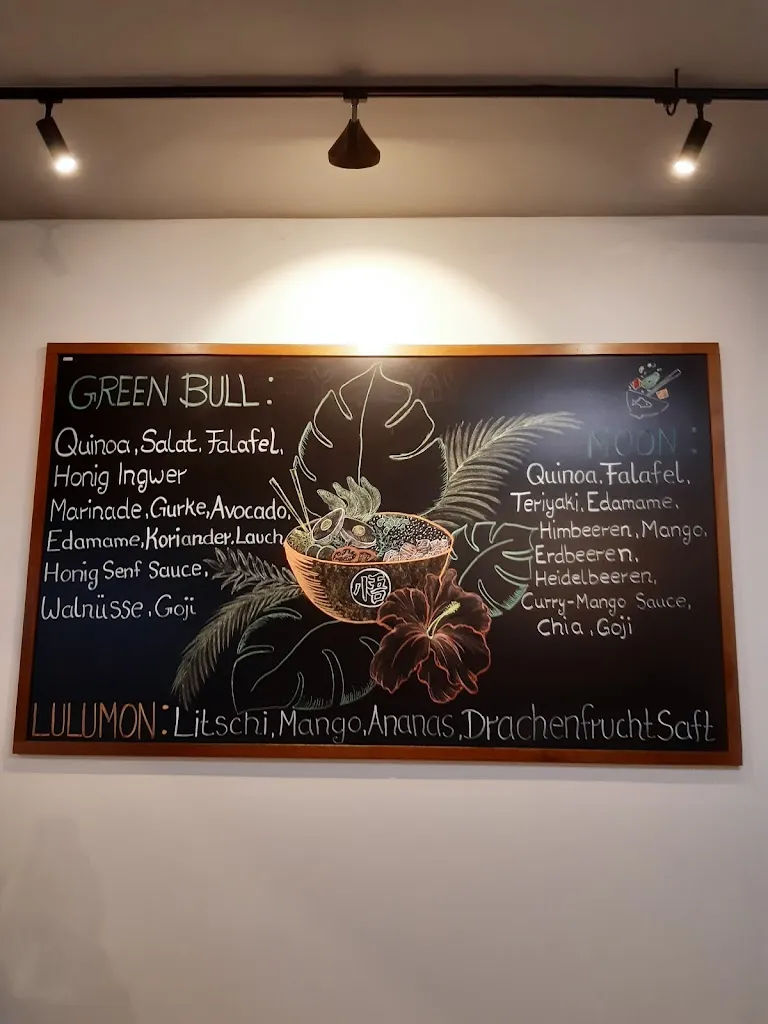 GREEN BULL:
Quinoa, Salat, Falafel,
Honig Ingwer
Marinade, Gurke, Avocado,
Edamame, Koriander, Lauch,
Honig Senf Sauce,
Walnüsse, Goji
悟
MOON:
Quinoa, Falafel,
Teriyaki, Edamame,
Himbeeren, Mango,
Erdbeeren,
Heidelbeeren,
Curry-Mango Sauce,
Chia, Goji
LULUMON: Litschi, Mango, Ananas, Drachenfrucht Saft